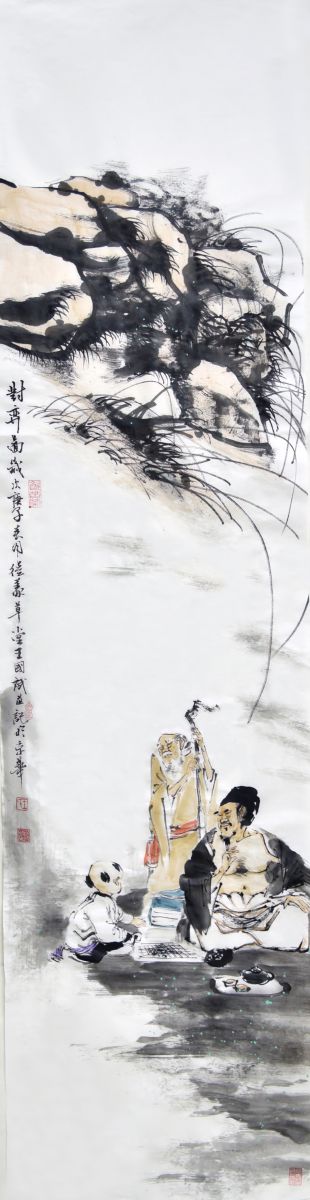 對弈圖歲次庚子春月從義草堂王國斌並記於京華